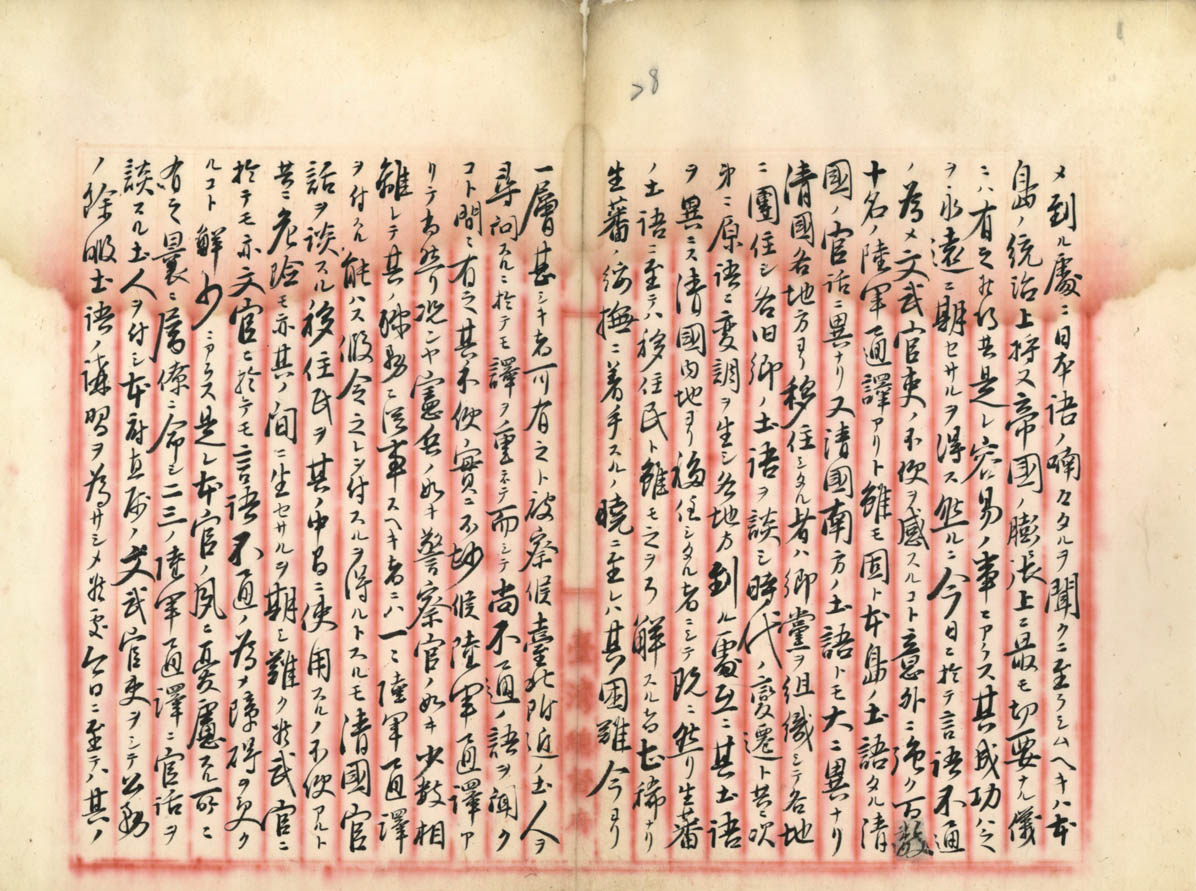 28
メ到ル處ニ日本語ノ喃々タルヲ聞クニ至ラシムヘキハ本
島ノ統治上将又帝國ノ膨漲上ニ最モ切要ナル儀
ニハ有之候得共是レ容易ノ事ニアラス其成功ハ之
ヲ永遠ニ期セサルヲ得ス然ルニ今日ニ於テ言語不通
ノ為メ文武官吏ノ不便ヲ感スルコト意外ニ強ク百数
十名ノ陸軍通譯アリト雖モ固ト本島ノ土語タル清
國ノ官話ニ異ナリ又清國南方ノ土語トモ大ニ異ナリ
清國各地方ヨリ移住シタル者ハ郷黨ヲ組織シテ各地
ニ團住シ各旧郷ノ土語ヲ談シ時代ノ變遷ト共ニ次
第ニ原語ニ変調ヲ生シ各地方到ル處互ニ其土語
ヲ異ニス清國内地ヨリ移住シタル者ニシテ既ニ然リ生蕃
ノ土語ニ至テハ移住民ト雖モ之ヲ解スル者稀ナリ
生蕃ノ綏撫ニ着手スルノ曉ニ至レハ其困難今ヨリ
一層甚シキ者可有之ト被察候臺北附近土人ヲ
尋問スルニ於テモ譯ヲ重ネテ而シテ尚不通ノ語ヲ聞ク
コト間ニ有之其不便ノ實ニ不尠候陸軍通譯ア
リテ尚然リ況ンヤ憲兵ノ如キ警察官ノ如キ少数相
離レテ其ノ職務ニ従事スヘキ者ニハ一々陸軍通譯
ヲ付スル能ハス假令之レヲ付スルヲ得ルトスルモ清國官
話ヲ談スル移住民ヲ其ノ中間ニ使用スルノ不便アルト
共ニ危険モ亦其ノ間ニ生セサルヲ期シ難ク於武官ニ
於テモ亦文官ニ於テモ言語不通ノ為メ障碍ヲ受ク
ルコト鮮少ニアラス是レ本官ノ夙ニ憂慮スル所ニ
有之曩ニ属僚ニ命シ二三ノ陸軍通譯ニ官話ヲ
談スル土人ヲ付シ本府直属ノ文武官吏ヲシテ公務
ノ餘暇土語ノ講習ヲ為サシメ候處今日ニ至テハ其ノ